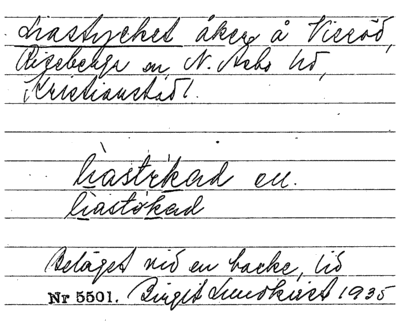 Liastycket åker å Visröd,
Riseberga sn, N. Åsbo hd,
Kristianstad l.
lìast𝑦kad en.
lìastøkad
Beläget vid en backe, lid
Nr 5501. Birgit Lundkvist 1935